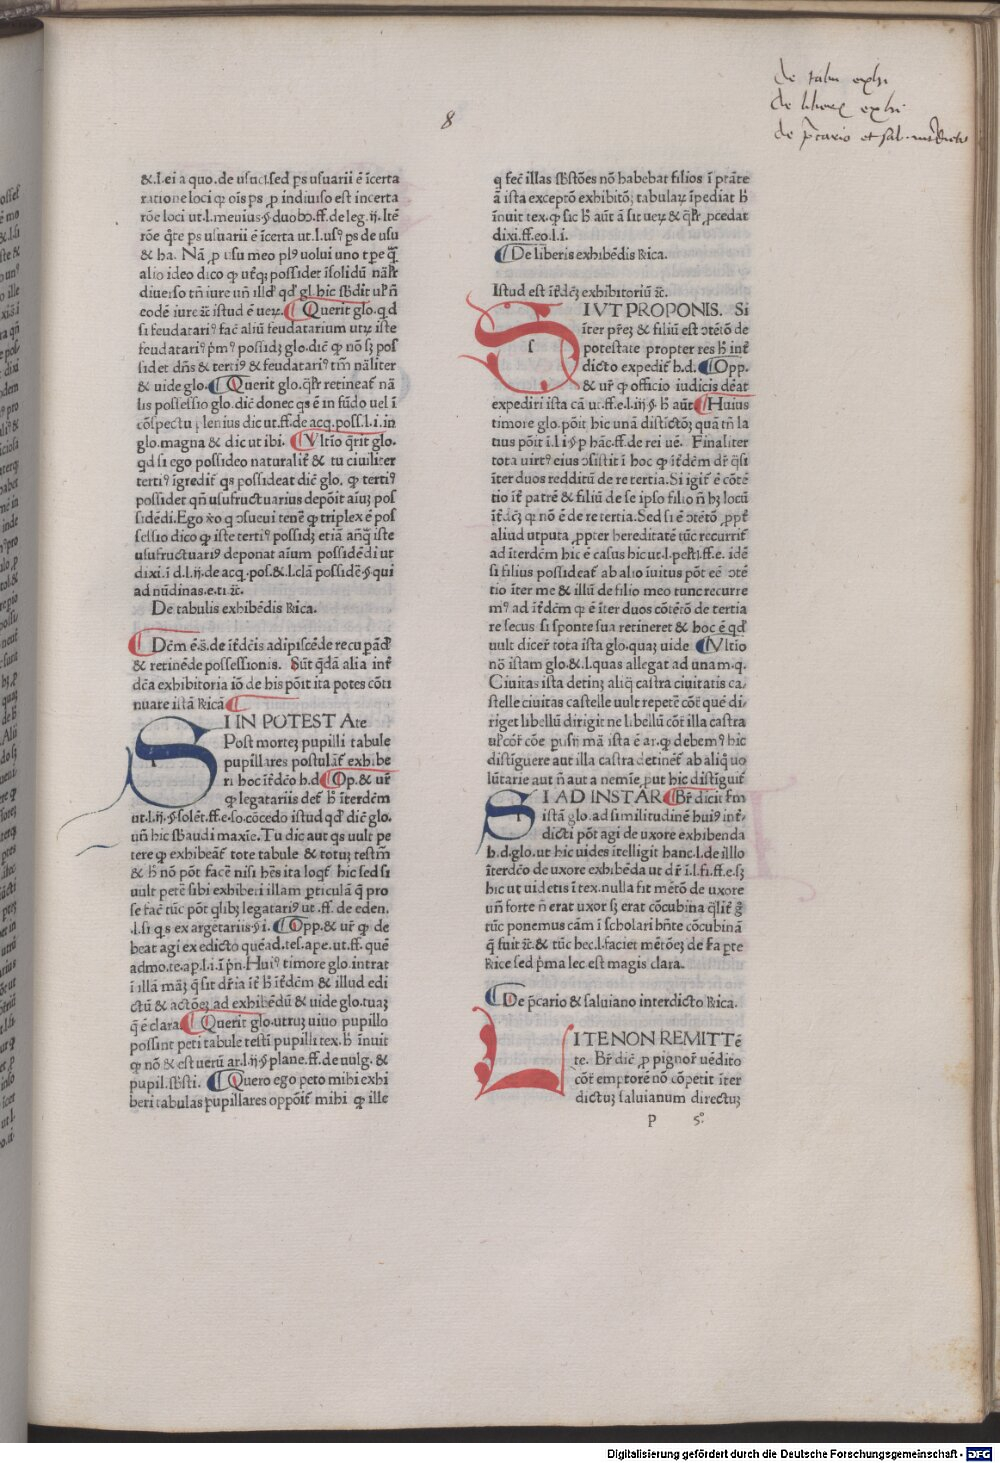 de tabu exhi
de liber exhi
de p̄cario et sal. interdicto
8
&. Lei a quo. de usuc. l. sed ps usuarii ē īcerta
ratione loci qꝫ oīs ps ꝓ indiuiso est incerta
rōe loci ut. l. meuius. §. duobo. ff. de leg. ij. Itē
rōe q̄te ps usuarii ē īcerta ut. l. usꝰ ps de usu
& ha. Nā ꝓ usu meo plꝰ uolui uno tꝑe q̄
alio ideo dico ꝙ utqꝫ possidet īsolidū nāl'r
diuerso tn̄ iure un̄ illd' qd' gl. hic sb'dit ul'r n̄
eodē iure &c. istud ē ueꝝ. Querit glo. q d
si feudatariꝰ fac̄ aliū feudatarium utꝝ iste
feudatariꝰ p̄mꝰ possidꝫ glo. dic̄ ꝙ nō sꝫ pos
sidet dn̄s & tertiꝰ & feudatariꝰ tm̄ nāliter
& uide glo. Querit glo. q̄l'r retineat' nā
lis possessio glo. dic̄ donec qs ē in fūdo uel ī
cōspectu; lenius dic ut. ff. de acq. poss. l. i. in
glo. magna & dic ut ibi. Vltīo q̄rit glo.
qd si ego possideo naturalit' & tu ciuiliter
tertiꝰ īgredit' qs possideat dic̄ glo. ꝙ tertiꝰ
possidet qn̄ usufructuarius depōit aīuꝫ pos
sidēdi. Ego v̄o q ɔsueui tenē ꝙ triplex ē pos
sessio dico ꝙ iste tertiꝰ possidꝫ etiā an̄qꝫ iste
usufructuariꝰ deponat aīum possidēdi ut
dixi. i d. l. ij. de acq. pos. & l. clā possidē. §. qui
ad nūdinas. e. ti &c.
De tabulis exhibēdis Rica.
Dēm ē. s. de it'dc̄is adipiscēde recuꝑād'
& retinēde possessionis. Sūt q̄dā alia int'
dc̄a exhibitoria iō de his pōit ita potes cōti
nuare istā Ricā
SI IN POTESTAte
Post morteꝫ pupilli tabule
pupillares postulāt' exhibe
ri hoc it'dc̄o h. d. Op. & ur̄
ꝙ legatariis det' h̄ īterdēm
ut. l. ij. §. solēt. ff. e. so cōcedo istud qd' dic̄ glo.
un̄ hic sb'audi maxīe. Tu dic aut qs uult pe
tere ꝙ exhibeāt' tote tabule & totuꝫ testm̄
& h̄ nō pōt facē nisi hēs ita loqt' hic sed si
uult petē sibi exhiberi illam ꝑticulā q̄ pro
se fac̄ tūc pōt qlibꝫ legatariꝰ ut. ff. de eden.
. l. si qs ex argētariis. §. i. Opp. & ur̄ ꝙ de
beat agi ex edicto quēad. tes. ape. ut. ff. quē
admo. te. ap. l. i. ī pn̄. Huiꝰ timore glo. intrat
ī illā māꝫ q̄ sit dr̄ia īt' h̄ it'dēm & illud edi
ctū & actōeꝫ ad exhibēdū & uide glo. tuaꝫ
q̄ ē clara. Querit glo. utruꝫ uiuo pupillo
possint peti tabule testī pupilli tex. h̄ īnuit
ꝙ nō & est uerū ar. l. ij. §. plane. ff. de uulg. &
pupil. sb'sti. Quero ego peto mihi exhi
beri tabulas pupillares oppōit' mihi ꝙ ille
q fec̄ illas sb'stōes nō habebat filios ī ptāte
ā ista exceptō exhibitōꝫ tabulaꝝ īpediat h̄
īnuit tex. ꝙ sic h̄ aūt ā sit ueꝝ & q̄l'r ꝓcedat
dixi. ff. eo. l. i.
De liberis exhibēdis Rica.
Istud est it'dcꝫ exhibitoriū &c.
SI VT PROPONIS. Si
s
īter pr̄eꝫ & filiū est ɔtētō de
potestate propter res h̄ int'
dicto expedit' h. d. Opp.
& ur̄ ꝙ officio iudicis dēat
expediri ista cā ut. ff. e. l. iij. §. h̄ aūt. Huius
timore glo. pōit hic unā distictōꝫ quā tn̄ la
tius pōit ī. l. i. §. p hāc. ff. de rei uē. Finaliter
tota uirtꝰ eius ɔsistit ī hoc ꝙ it'dēm dr̄ q̄si
īter duos redditū de re tertia. Si igit' ē cōtē
tio it' patrē & filiū de se ipso filio n̄ hꝫ locū
it'dcꝫ ꝙ nō ē de re tertia. Sed si ē ɔtētō ꝓpt'
aliud utputa ꝓpter hereditatē tūc recurrit'
ad īterdēm hic ē casus hic ut. l. pen'l. ff. e. idē
si filius possideat' ab alio īuitus pōt eē ɔtē
tio īter me & illū de filio meo tunc recurre
mꝰ ad it'dēm ꝙ ē īter duos cōtētō de tertia
re secus si sponte sua retineret & hoc ē qd'
uult dicer' tota ista glo. quaꝫ uide Vltīo
nō istam glo. & .l. quas allegat ad unam. q.
Ciuitas ista detinꝫ aliq̄ castra ciuitatis ca
stelle ciuitas castelle uult repetē cōt' que di
riget libellū dirigit ne libellū cōt' illa castra
ul' cōt' cōe ꝑusij mā ista ē ar. ꝙ debemꝰ hic
distiguere aut illa castra detinet' ab aliq̄ uo
lūtarie aut n̄ aut a nemīe ꝓut hic distiguit'
SI AD INSTAR. Br̄ dicit fm̄
istā glo. ad similitudinē huiꝰ int'
dicti pōt agi de uxore exhibenda
h. d. glo. ut hic uides ītelligit hanc. l. de illo
īterdc̄o de uxore exhibēda ut dr̄ ī. l. fi. ff. e. sꝫ
hic ut uidetis ī tex. nulla fit mētō de uxore
un̄ forte n̄ erat uxor sꝫ erat cōcubina q̄lit' g̊
tūc ponemus cām ī scholari hn̄te cōcubinā
q̄ fuit &c. & tūc hec. l. faciet mētōeꝫ de fa ꝑte
Rice sed p̄ma lec. est magis clara.
De p̄cario & saluiano interdicto Rica.
LITE NON REMITTē
te. Br̄ dic̄ ꝓ pignor' uēdito
cōt' emptorē nō cōpetit īter
dictuꝫ saluianum directuꝫ
P 5º
Digitalisierung gefördert durch die Deutsche Forschungsgemeinschaft - DFG